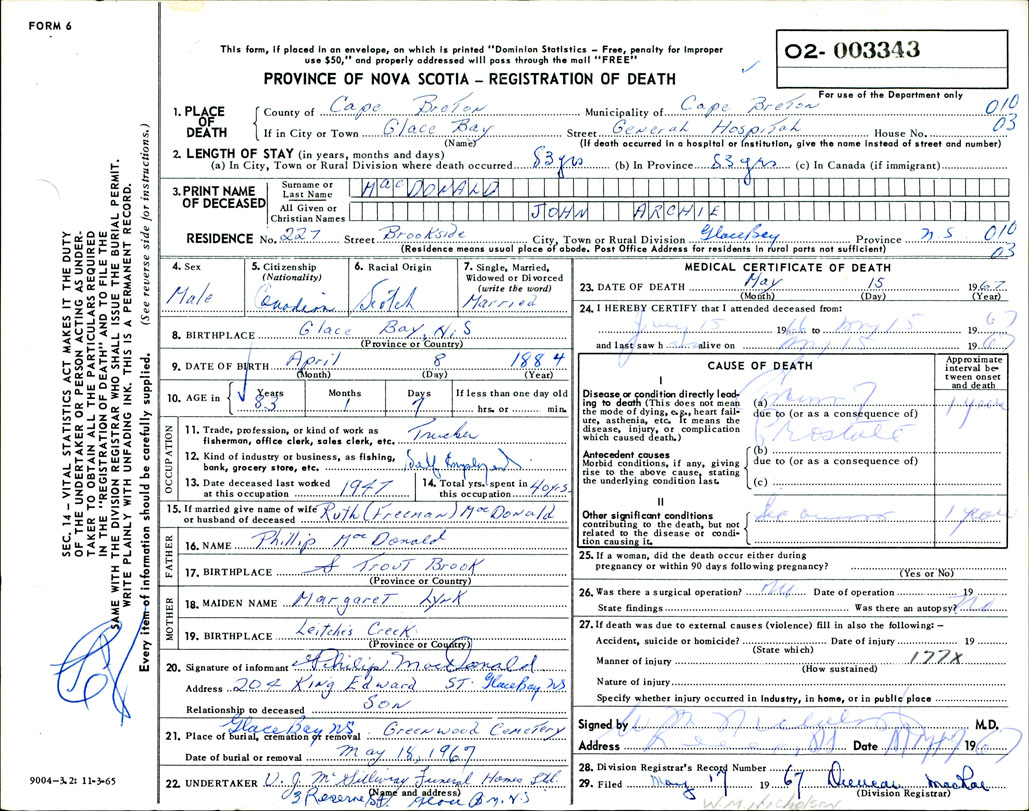 FORM 6
This form, if placed in an envelope, on which is printed "Dominion Statistics – Free, penalty for improper
use $50," and properly addressed will pass through the mail "FREE"
O2- 003343
PROVINCE OF NOVA SCOTIA – REGISTRATION OF DEATH
For use of the Department only
1. PLACE OF DEATH
County of Cape Breton Municipality of Cape Breton 010
If in City or Town Glace Bay Street General Hospital House No. 03
(Name) (If death occurred in a hospital or institution, give the name instead of street and number)
2. LENGTH OF STAY (in years, months and days)
(a) In City, Town or Rural Division where death occurred 83 yrs (b) In Province 83 yrs (c) In Canada (if immigrant)
3. PRINT NAME OF DECEASED
Surname or Last Name MacDONALD
All Given or Christian Names JOHN ARCHIE
RESIDENCE No. 227 Street Brookside City, Town or Rural Division Glace Bay Province N.S. 010
(Residence means usual place of abode. Post Office Address for residents in rural parts not sufficient) 03
4. Sex
Male
5. Citizenship
(Nationality)
Canadian
6. Racial Origin
Scotch
7. Single, Married, Widowed or Divorced
(write the word)
Married
8. BIRTHPLACE Glace Bay, N.S
(Province or Country)
9. DATE OF BIRTH April 8 1884
(Month) (Day) (Year)
10. AGE in Years Months Days If less than one day old
83 1 7 hrs. or min.
OCCUPATION
11. Trade, profession, or kind of work as
fisherman, office clerk, sales clerk, etc. Trucker
12. Kind of industry or business, as fishing,
bank, grocery store, etc. Self Employed
13. Date deceased last worked
at this occupation 1947
14. Total yrs. spent in
this occupation 40 yrs.
15. If married give name of wife
or husband of deceased Ruth (Freeman) MacDonald
FATHER
16. NAME Phillip MacDonald
17. BIRTHPLACE Trout Brook
(Province or Country)
MOTHER
18. MAIDEN NAME Margaret Lynk
19. BIRTHPLACE Leitches Creek
(Province or Country)
20. Signature of informant Philip MacDonald
Address 204 King Edward ST. Glace Bay NS.
Relationship to deceased SON
21. Place of burial, cremation or removal Glace Bay NS Greenwood Cemetery
Date of burial or removal May 18, 1967
22. UNDERTAKER V. J. McGillivray Funeral Homes Ltd.
(Name and address)
3 Reserve St. N.S
MEDICAL CERTIFICATE OF DEATH
23. DATE OF DEATH May 15 1967
(Month) (Day) (Year)
24. I HEREBY CERTIFY that I attended deceased from:
15 1966 to May 15 1967
and last saw h alive on May 15 1967
CAUSE OF DEATH
Approximate interval between onset and death
I
Disease or condition directly leading to death (This does not mean
the mode of dying, e.g., heart failure, asthenia, etc. It means the
disease, injury, or complication
which caused death.)
(a) 1 year
due to (or as a consequence of)
Prostate
Antecedent causes
Morbid conditions, if any, giving
rise to the above cause, stating
the underlying condition last.
(b)
due to (or as a consequence of)
(c)
II
Other significant conditions
contributing to the death, but not
related to the disease or condition causing it.
1 year
25. If a woman, did the death occur either during
pregnancy or within 90 days following pregnancy?
(Yes or No)
26. Was there a surgical operation? No Date of operation 19
State findings Was there an autopsy? No
27. If death was due to external causes (violence) fill in also the following: –
Accident, suicide or homicide? Date of injury 19
(State which)
Manner of injury 177X
(How sustained)
Nature of injury
Specify whether injury occurred in industry, in home, or in public place
Signed by W M Nicholson M.D.
Address Date 1967
28. Division Registrar's Record Number
29. Filed May 17 1967 MacRae
(Division Registrar)
W.M. Nicholson
SEC. 14 – VITAL STATISTICS ACT MAKES IT THE DUTY
OF THE UNDERTAKER OR PERSON ACTING AS UNDER-
TAKER TO OBTAIN ALL THE PARTICULARS REQUIRED
IN THE "REGISTRATION OF DEATH" AND TO FILE THE
SAME WITH THE DIVISION REGISTRAR WHO SHALL ISSUE THE BURIAL PERMIT.
WRITE PLAINLY WITH UNFADING INK. THIS IS A PERMANENT RECORD.
Every item of information should be carefully supplied. (See reverse side for instructions.)
9004-3.2: 11-3-65